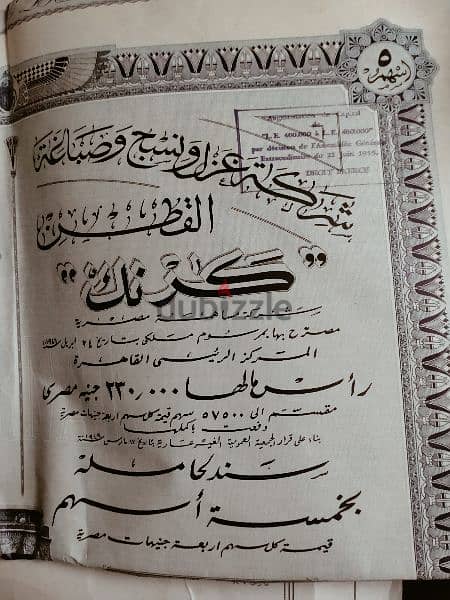 ٥
أسهم
Augmentation Capital
de
"L.E. 400.000 à L.E.
par décision de l'Assemblée Générale
Extraordinaire du 21 Juin
شركة غزل ونسج وصباغة
القطن
"كرنك"
شركة مساهمة مصرية
مصرح بها بمرسوم ملكي بتاريخ ٢٤ ابريل
المركز الرئيسي القاهرة
رأس مالها ٢٣٠٫٠٠٠ جنيه مصريا
مقسم الى ٥٧٥٠٠ سهم قيمة كل سهم اربعة جنيهات مصرية
دفعت بأكملها
بناء على قرار الجمعية العمومية الغير عادية بتاريخ مارس
سند لحامله
بخمسة أسهم
قيمة كل سهم اربعة جنيهات مصرية
dubizzle